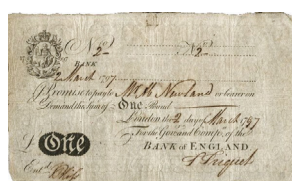 No. 2 No. 2
BANK
2 March 1797
I Promise to pay to Mr. A Newland or bearer on
Demand the Sum of One Pound
London the 2 day of March 1797
For the Gov. and Comp.a of the
£ One BANK of ENGLAND
Ent.d